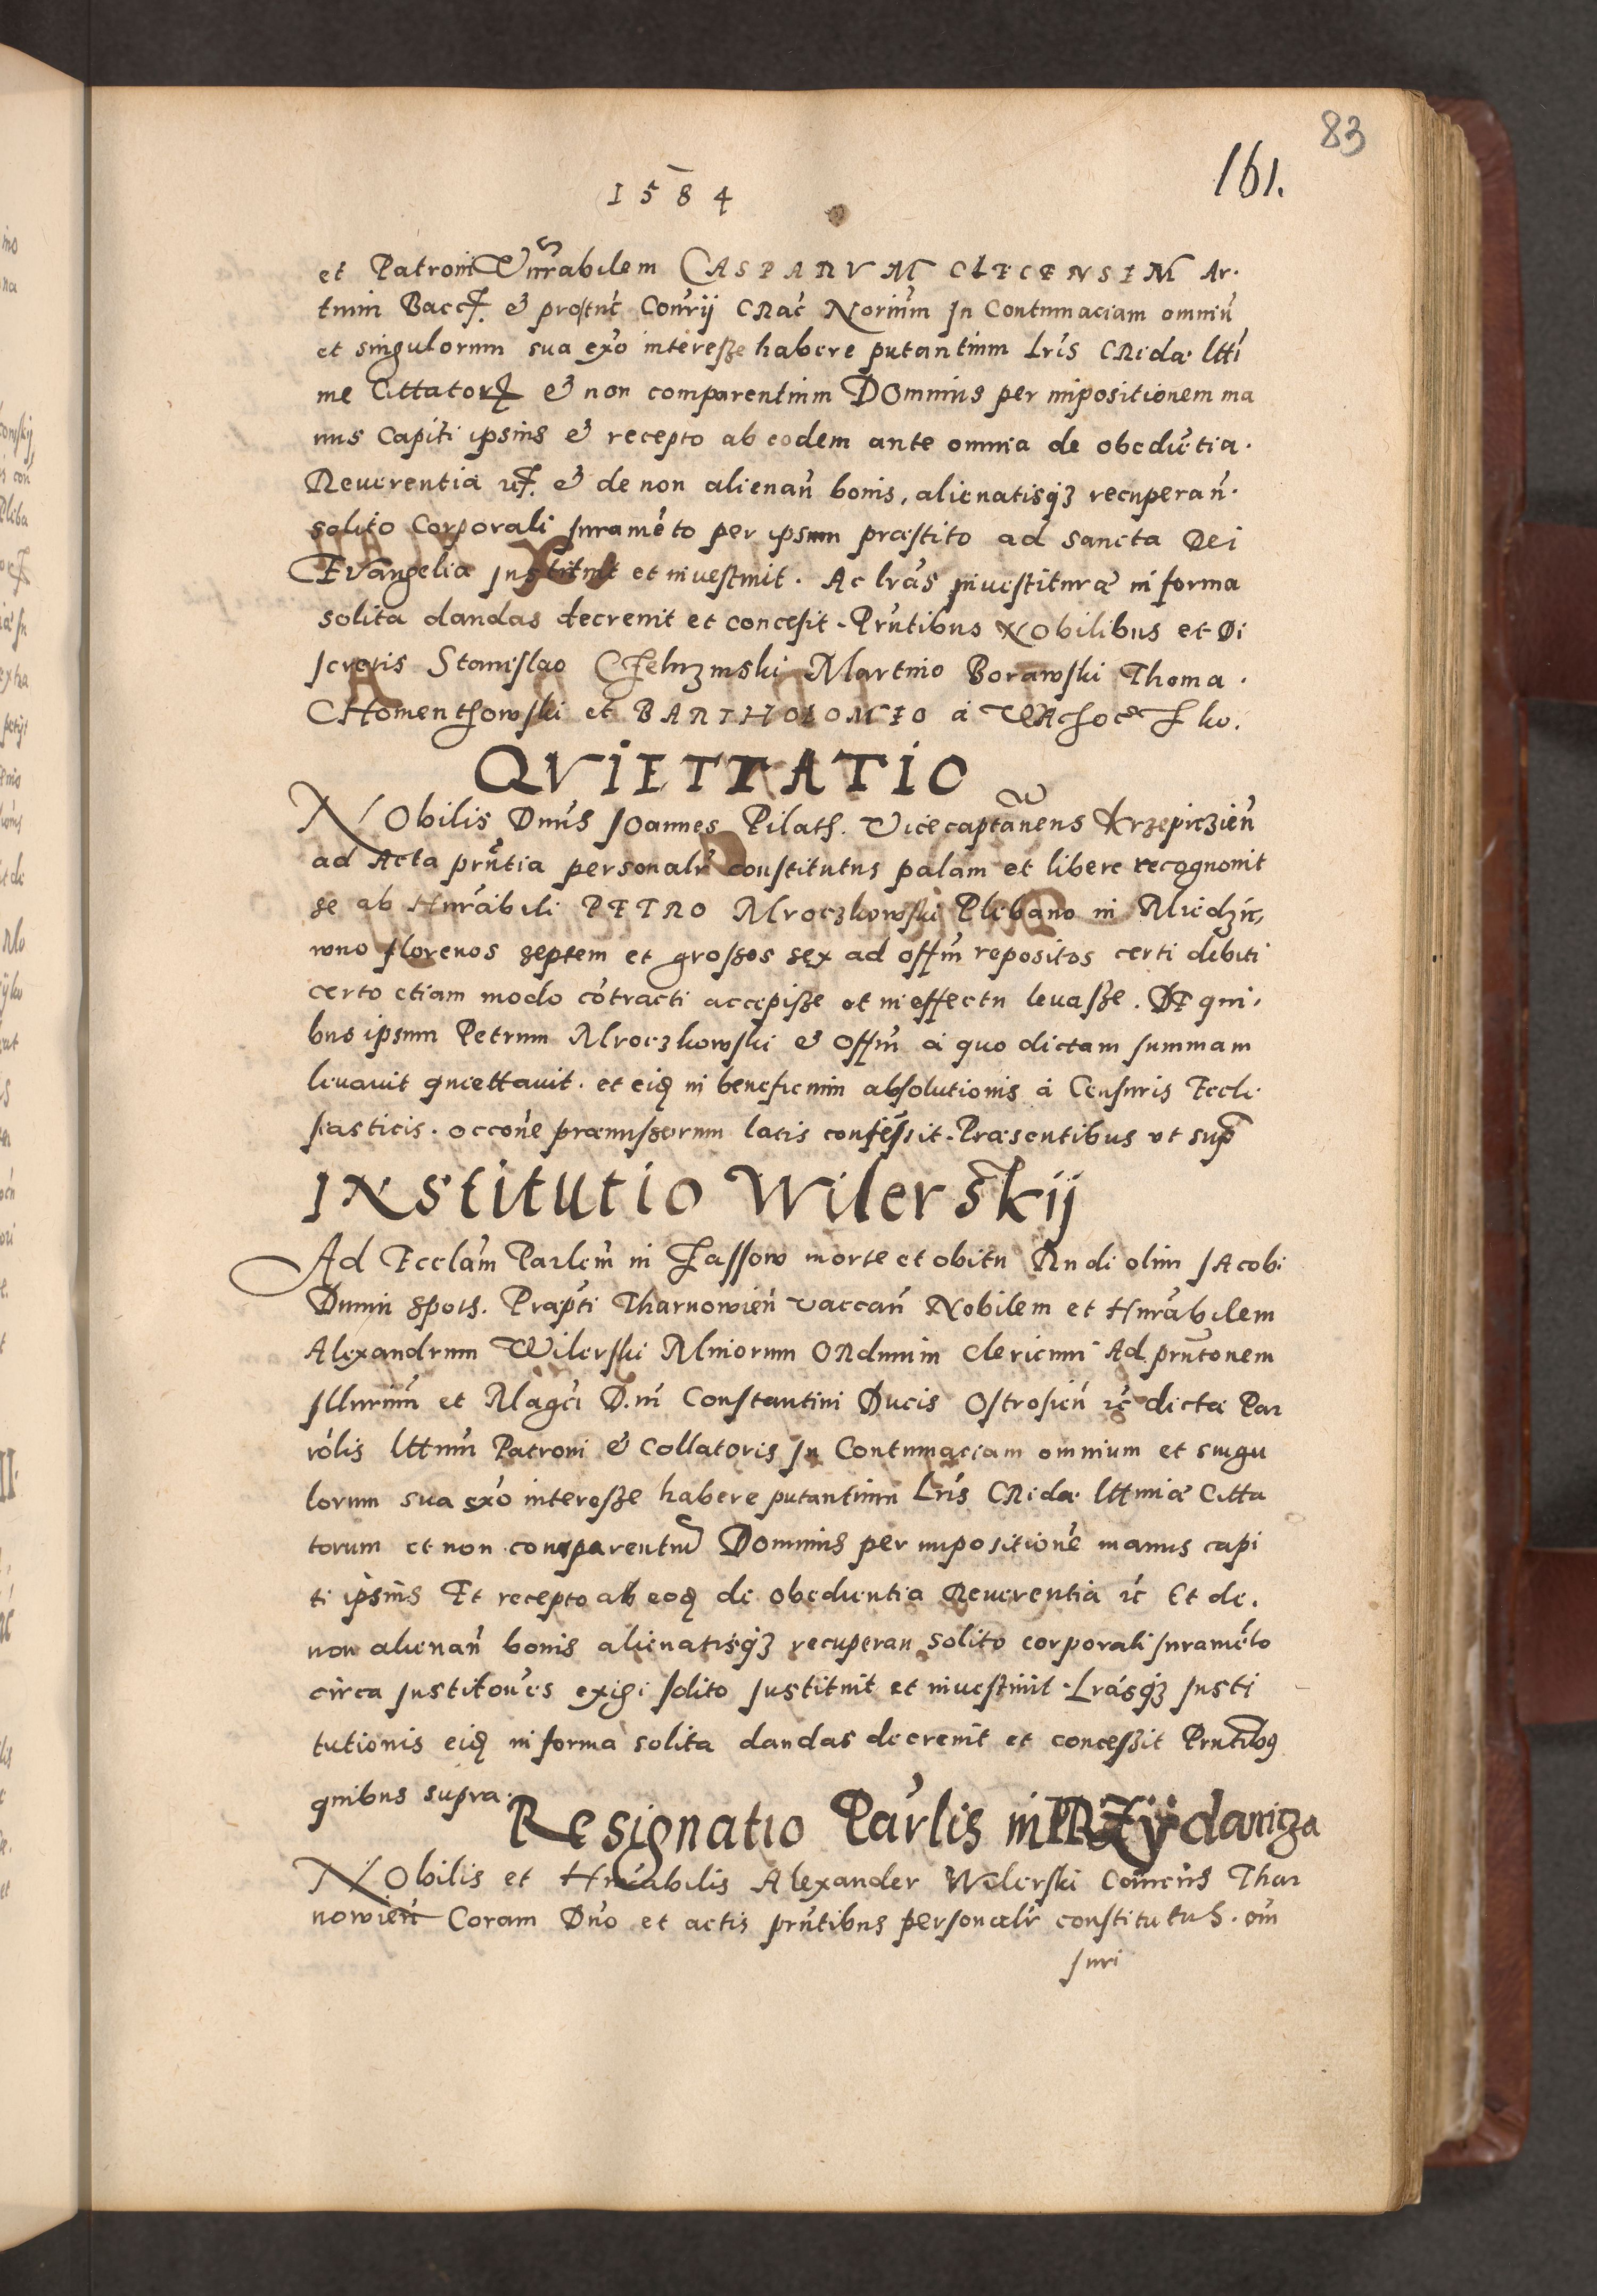 83
161.
1584
et Patroni Vnrabilem CASPARVM CLECENSEM Ar.
tium Bacc. & protuncConrij CRac Norium In Contumaciam omniu
et singulorum sua exo interesze habere putantium Lris CReda lttī
me Cittator & non comparentium DOminus per impositionem ma
nus Capiti ipsius & recepto ab eodem ante omnia de obedietia.
Reuerentia & de non alienan bonis, alienatisqz recuperan.
solito Corporali Iurameto per ipsum præstito ad sancta Dei
Evangelia Instituit et inuestiuit. Ac lras Inuestituræ in forma
solita dandas decreuit et concesit. Prntibus NObilibus et Di
scretis Stanislao Martino Borawski Thoma.
CHomenthowski et BARTHOLOMEO á
QVIETTATIO
NObilis Dnus JOannes Pilath. Vicecaptaneus Krzepiczien
ad Acta prntia personalr constitutus palam et libere recognouit
se ab Hnrabili PETRO Mroczkowski Plebano in Miedzn,
wno florenos septem et groszos sex ad offm repositos certi debiti
certo etiam modo cotracti accepisze et in effectu leuasze. DE qui,
bus ipsum Petrum Mroczkowski & Offm á quo dictam summam
leuauit quiettauit. et eid in beneficium absolutionis á Censuris Eccle
siasticis. occone præmiszorum latis consessit. Præsentibus vt sup
INstitutio Wilerskij
Ad Ecclam Parlem in Jassow morte et obitu Rndi olim JAcobi
Dnmin Præpti Tharnowien vaccan Nobilem et Hnrabilem
Alexandrum Wilerski Miniorum ORdinum Clericum Ad prntonem
Illurim et Magci D.ni Constantini Ducis Ostrosien rc dictæ Par
rolis lttmi Patroni & Collatoris In Contumaciam omnium et singu
lorum sua exo interesze habere putantium Lris CReda lttimæ Citta
torum et non comparentiu Dominus per impositione manus capi
ti ipsius Et recepto ab eod de obedientia Reuerentia rc Et de.
non alienan bonis alienatisqz recuperan solito corporali Iurameto
circa Institones exigi solito Instituit et inuestiuit. Lrasqz Insti
tutionis eid in forma solita dandas decreuit et conceszit Prntibus
quibus supra.
Resignatio Parlis in PRZydaniza
NObilis et Hnrabilis Alexander Wilerski Thar
nowien Coram Dno et actis prntibus personalr constitutus. om
Iuri